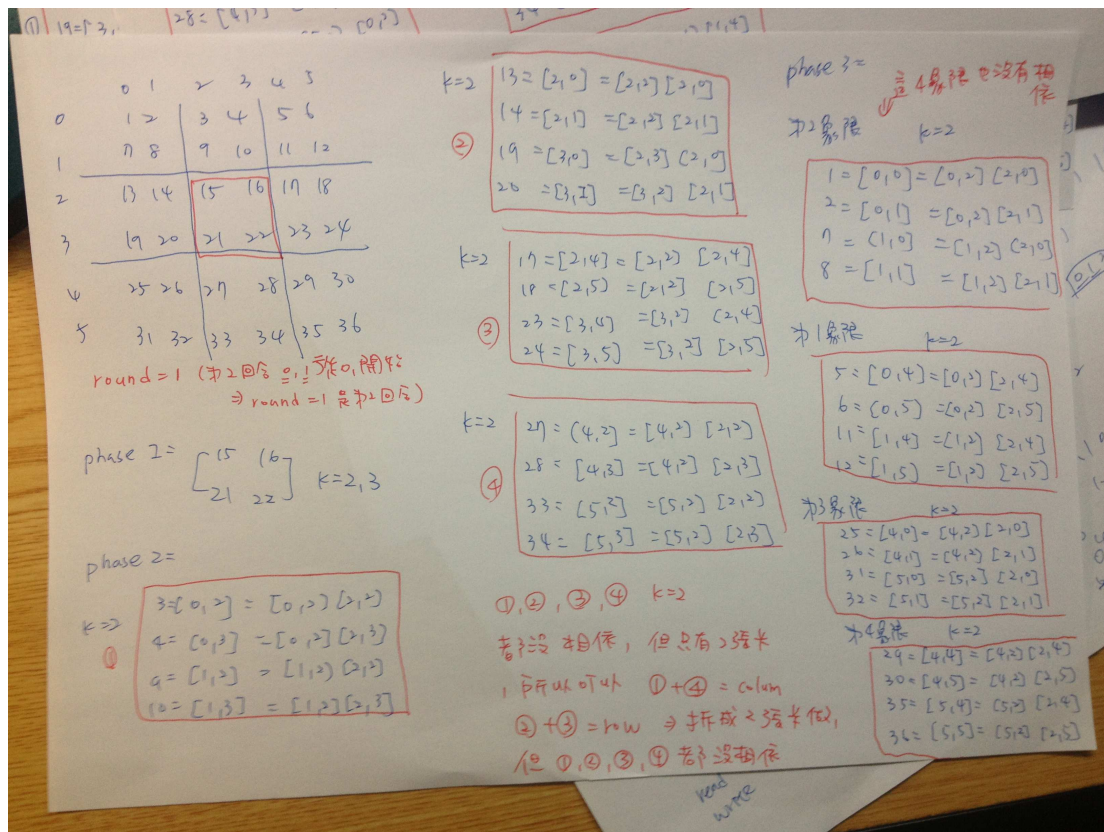 ① 19=[3,
28=[4,
0 1 2 3 4 5
0 1 2 3 4 5 6
1 7 8 9 10 11 12
2 13 14 15 16 17 18
3 19 20 21 22 23 24
4 25 26 27 28 29 30
5 31 32 33 34 35 36
round=1 (第2回合 0,1 從0,開始
⇒ round=1 是第2回合)
phase 1=
[15 16
21 22] k=2,3
phase 2=
k=2
①
3=[0,2] = [0,2][2,2]
4=[0,3] =[0,2][2,3]
9=[1,2] =[1,2][2,2]
10=[1,3] =[1,2][2,3]
k=2
②
13=[2,0] =[2,2][2,0]
14=[2,1] =[2,2][2,1]
19=[3,0] =[2,3][2,0]
20=[3,1] =[3,2][2,1]
k=2
③
17=[2,4]=[2,2] [2,4]
18=[2,5] =[2,2] [2,5]
23=[3,4] =[3,2] [2,4]
24=[3,5] =[3,2] [2,5]
k=2
④
27=[4,2]=[4,2] [2,2]
28=[4,3]=[4,2] [2,3]
33=[5,2] =[5,2][2,2]
34=[5,3] =[5,2][2,3]
①,②,③,④ k=2
都沒相依, 但只有2張卡
,所以可以 ①+④=colum
②+③=row ⇒ 拆成2張卡做,
但①,②,③,④都沒相依
phase 3=
這4象限也沒有相依
第2象限 k=2
1=[0,0]=[0,2][2,0]
2=[0,1] =[0,2][2,1]
7=[1,0] =[1,2][2,0]
8=[1,1] =[1,2][2,1]
第1象限 k=2
5=[0,4]=[0,2][2,4]
6=[0,5] =[0,2][2,5]
11=[1,4] =[1,2][2,4]
12=[1,5] =[1,2][2,5]
第3象限 k=2
25=[4,0]=[4,2][2,0]
26=[4,1] =[4,2][2,1]
31=[5,0] =[5,2][2,0]
32=[5,1]=[5,2][2,1]
第4象限 k=2
29=[4,4]=[4,2][2,4]
30=[4,5]=[4,2][2,5]
35=[5,4]=[5,2][2,4]
36=[5,5]=[5,2][2,5]
read
write